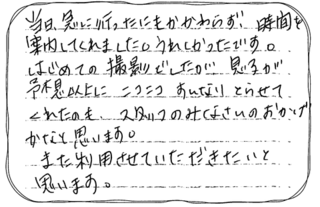 当日、急に行ったにもかかわらず、時間を
案内してくれました。うれしかったです。
はじめての撮影でしたが 息子が
予想以上に ニコニコ すんなり とらせて
くれたのも、スタッフのみなさいのおかげ
かなと思います。
また利用させていただきたいと
思います。